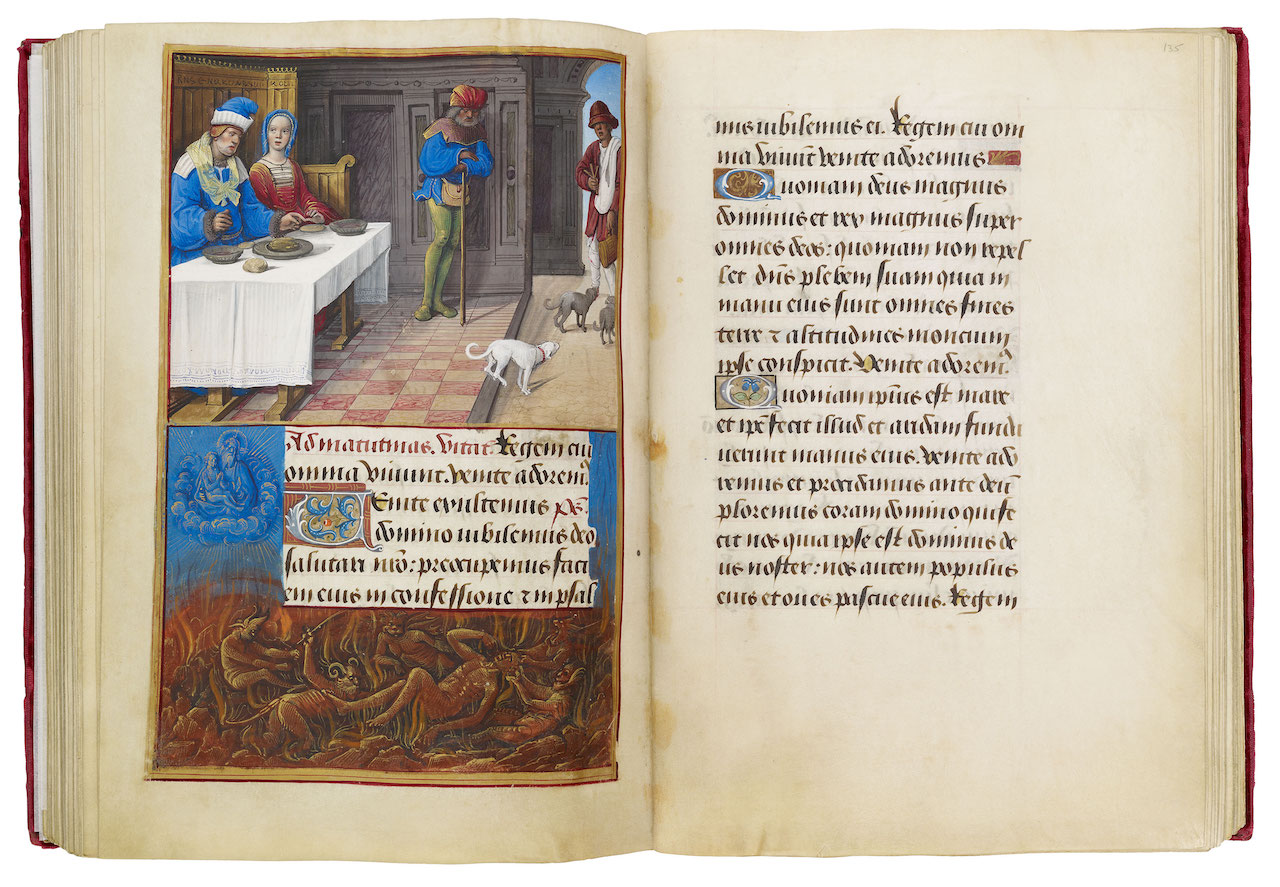 Ad matutinas. Vitat. Regem cui
omnia viuunt. venite adoremꝰ.
Venite exultemus pš.
domino iubilemus deo
salutari nr̄o: preocupemus faci
em eius in confessione ⁊ in psal
135
mis iubilemus ei. Regem cui om
nia viuūt venite adoremus
Quoniam deus magnus
dominus et rex magnus super
omnes deos: quoniam non repel
let dn̄s plebem suam quia in
manu eius sunt omnes fines
terre ⁊ altitudines moncium
ipse conspicit. Venite adoremꝰ
Quoniam ip̄ius est mare
et ip̄e fecit illud et aridam funda
uerunt manus eius. venite ado
remus et procidimus ante deū
ploremus coram domino qui fe
cit nos quia ipse est dominus de
us noster: nos autem populus
eius et oues pascue eius. Regem